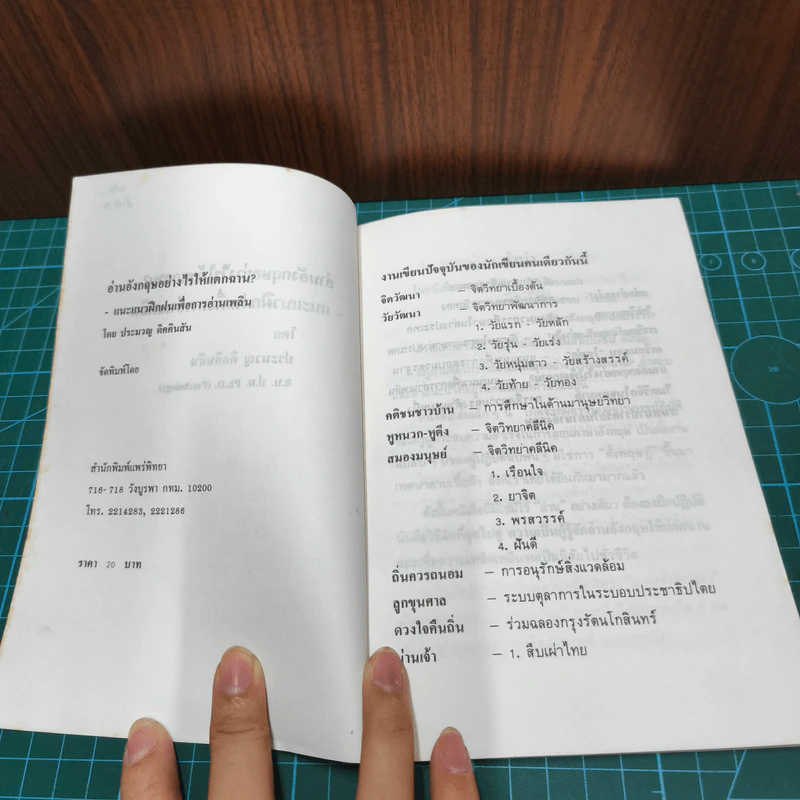 อ่านอังกฤษอย่างไรให้แตกฉาน?
- แนะแนวฝึกฝนเพื่อการอ่านเพลิน
โดย ประมวญ ดิคคินสัน
จัดพิมพ์โดย
สำนักพิมพ์แพร่พิทยา
716-718 วังบูรพา กทม. 10200
โทร. 2214283, 2221286
ราคา 20 บาท
งานเขียนปัจจุบันของนักเขียนคนเดียวกันนี้
จิตวัฒนา — จิตวิทยาเบื้องต้น
วัยวัฒนา — จิตวิทยาพัฒนาการ
1. วัยแรก - วัยหลัก
2. วัยรุ่น - วัยเร่ง
3. วัยหนุ่มสาว - วัยสร้างสรรค์
4. วัยท้าย - วัยทอง
คติชนชาวบ้าน — การศึกษาในด้านมานุษยวิทยา
หูหนวก-หูตึง — จิตวิทยาคลีนิค
สมองมนุษย์ — จิตวิทยาคลีนิค
1. เรือนใจ
2. ยาจิต
3. พรสวรรค์
4. ฝันดี
ถิ่นควรถนอม — การอนุรักษ์สิ่งแวดล้อม
ลูกขุนศาล — ระบบตุลาการในระบอบประชาธิปไตย
ดวงใจคืนถิ่น — ร่วมฉลองกรุงรัตนโกสินทร์
— 1. สืบเผ่าไทย